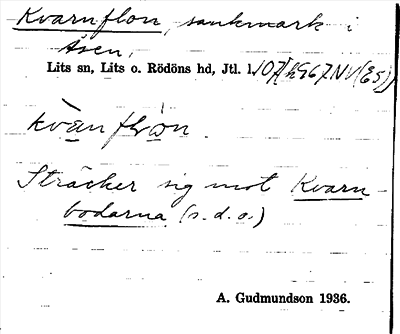 Kvarnflon, sankmark i
Åsen,
Lits sn, Lits o. Rödöns hd, Jtl. l.
kvæ̀nfḷòn.
Sträcker sig mot Kvarn-
bodarna (s.d.o.)
A. Gudmundson 1936.